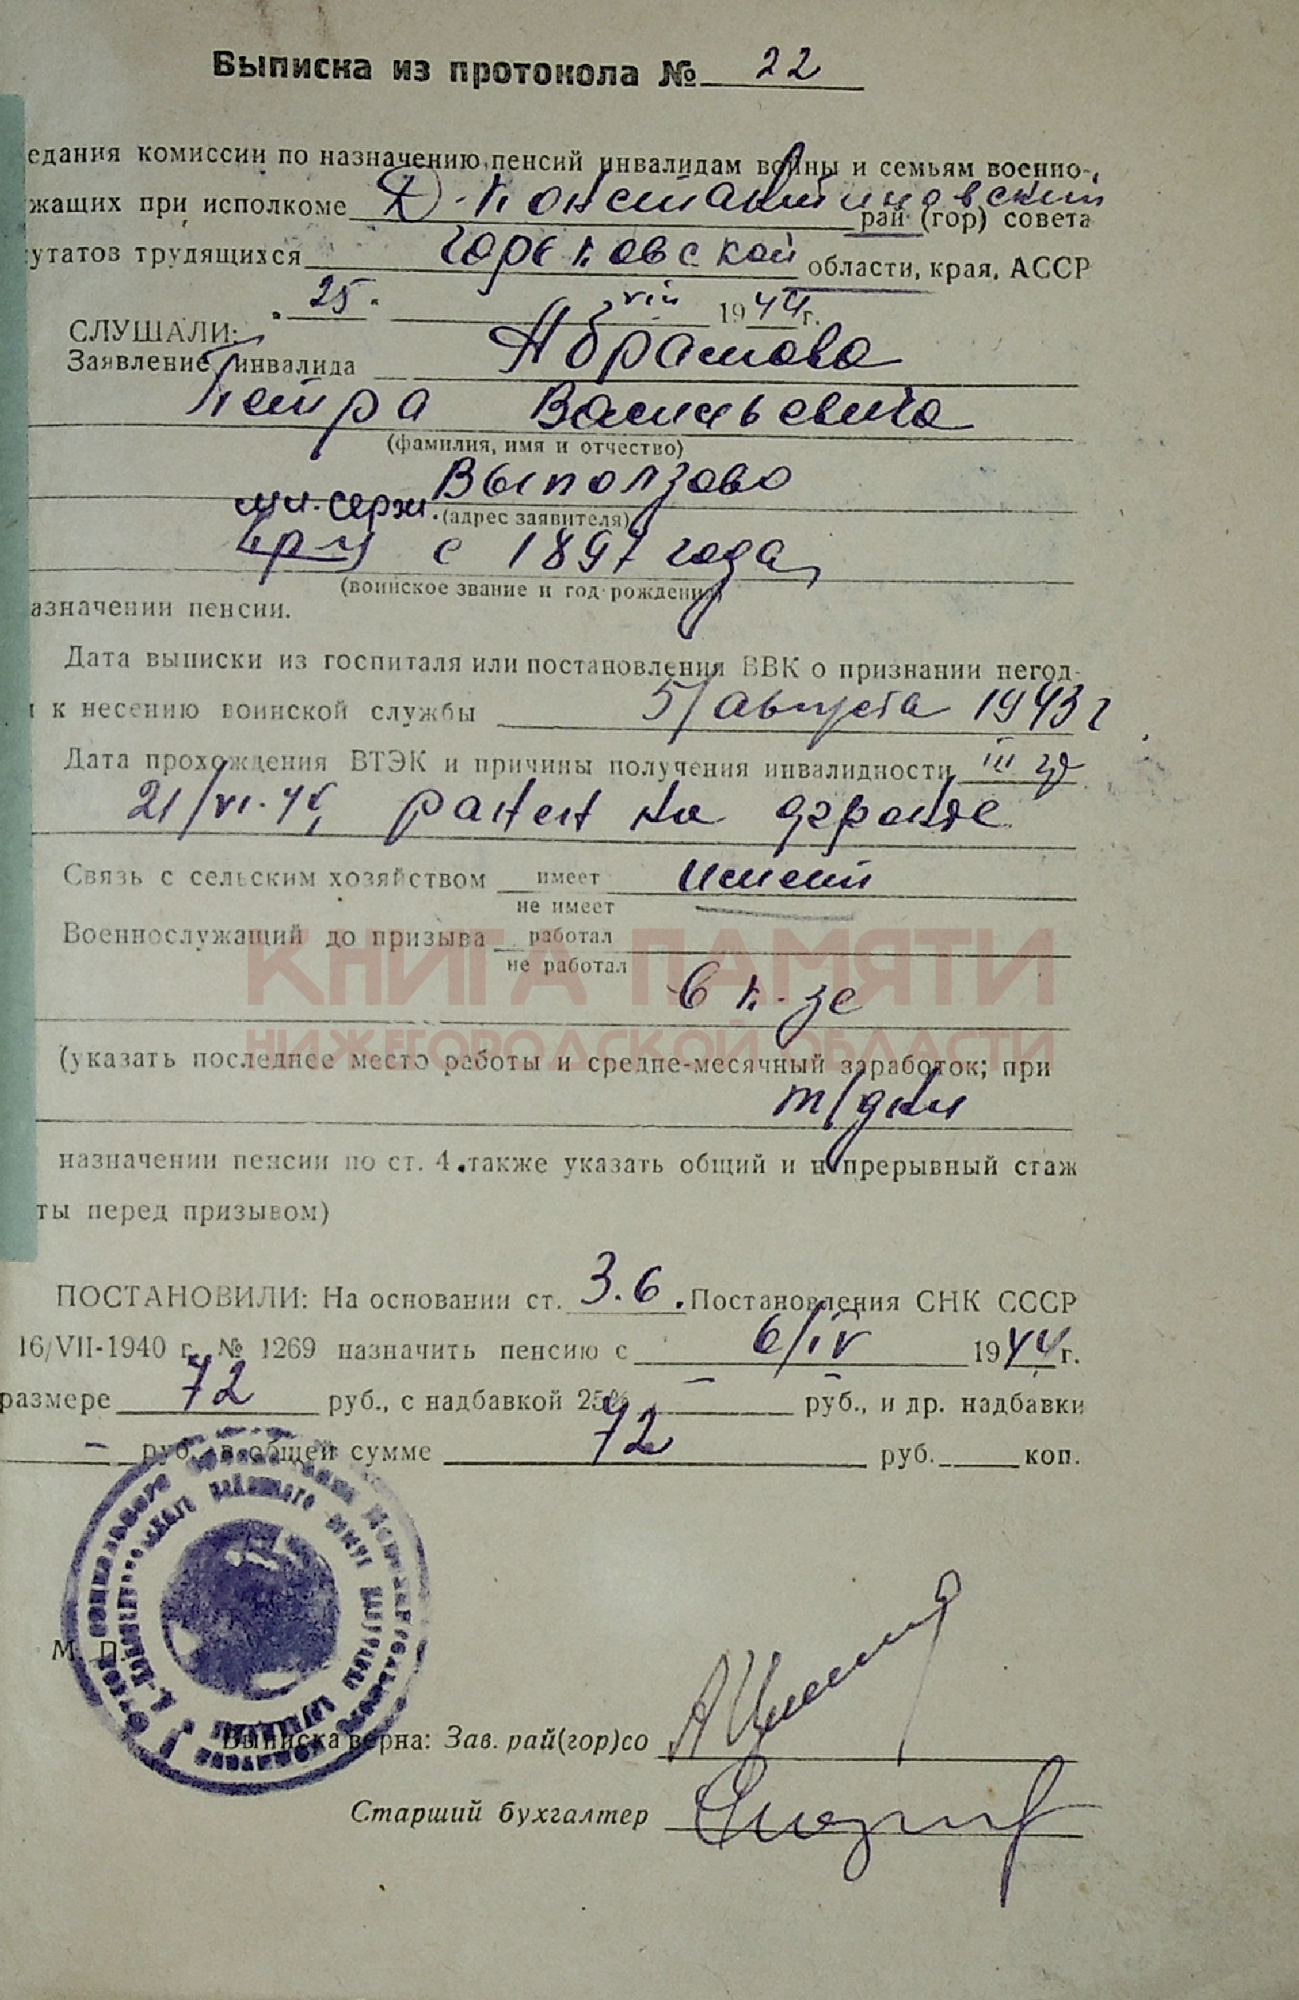 Выписка из протокола № 22
едания комиссии по назначению пенсий инвалидам войны и семьям военно-
жащих при исполкоме Д-Константиновский рай (гор) совета
утатов трудящихся Горьковской области, края, АССР
25. VIII 1944 г.
СЛУШАЛИ:
Заявление инвалида Абрамова
Петра Васильевича
(фамилия, имя и отчество)
Выползово
мл. серж. (адрес заявителя)
с 1897 года
(воинское звание и год рождения)
азначении пенсии.
Дата выписки из госпиталя или постановления ВВК о признании негод-
к несению воинской службы 5/августа 1943 г
Дата прохождения ВТЭК и причины получения инвалидности III гр
ранен на фронте
Связь с сельским хозяйством имеет имеет
не имеет
Военнослужащий до призыва работал
не работал
в к-зе
КНИГА ПАМЯТИ
НИЖЕГОРОДСКОЙ ОБЛАСТИ
(указать последнее место работы и средне-месячный заработок; при
т/дни
назначении пенсии по ст. 4 также указать общий и непрерывный стаж
ты перед призывом)
ПОСТАНОВИЛИ: На основании ст. 3.б. Постановления СНК СССР
16/VII-1940 г. № 1269 назначить пенсию с 6/IV 1944 г.
размере 72 руб., с надбавкой 25% — — руб., и др. надбавки
— руб. в общей сумме 72 руб. коп.
М. П.
Выписка верна: Зав. рай(гор)со
Старший бухгалтер